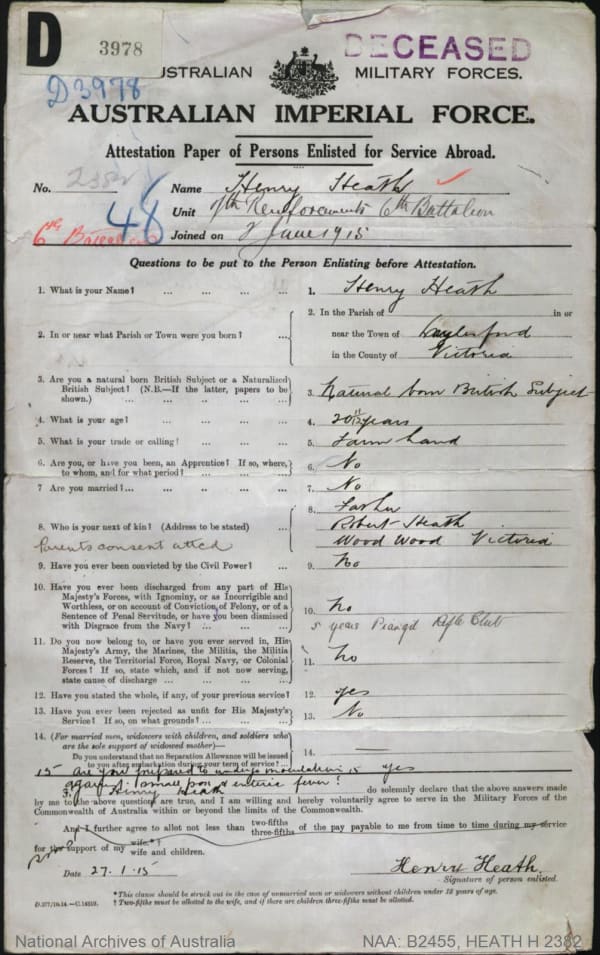 D
3978
DECEASED
D3978
AUSTRALIAN MILITARY FORCES.
AUSTRALIAN IMPERIAL FORCE.
Attestation Paper of Persons Enlisted for Service Abroad.
No. 2382 Name Henry Heath
48 Unit 7th Reinforcements 6th Battalion
6th Battalion Joined on 2 June 1915
Questions to be put to the Person Enlisting before Attestation.
1. What is your Name? ... ... ... ... 1. Henry Heath
2. In or near what Parish or Town were you born? ... 2. In the Parish of in or
near the Town of Daylesford
in the County of Victoria
3. Are you a natural born British Subject or a Naturalized
British Subject? (N.B.—If the latter, papers to be
shown.) ... ... ... ... ... 3. Natural born British Subject
4. What is your age? ... ... ... ... 4. 20 years
5. What is your trade or calling? ... ... ... 5. Farm hand
6. Are you, or have you been, an Apprentice? If so, where,
to whom, and for what period? ... ... ... 6. No
7 Are you married? ... ... ... ... 7. No
8. Who is your next of kin? (Address to be stated) ... 8. Father
Robert Heath
Wood Wood Victoria
Parents consent attcd
9. Have you ever been convicted by the Civil Power? ... 9. No
10. Have you ever been discharged from any part of His
Majesty's Forces, with Ignominy, or as Incorrigible and
Worthless, or on account of Conviction of Felony, or of a
Sentence of Penal Servitude, or have you been dismissed
with Disgrace from the Navy? ... ... ... 10. No
5 years Piangil Rifle Club
11. Do you now belong to, or have you ever served in, His
Majesty's Army, the Marines, the Militia, the Militia
Reserve, the Territorial Force, Royal Navy, or Colonial
Forces? If so, state which, and if not now serving,
state cause of discharge ... ... ... ... 11. No
12. Have you stated the whole, if any, of your previous service? 12. yes
13. Have you ever been rejected as unfit for His Majesty's
Service? If so, on what grounds? ... ... ... 13. No
14. (For married men, widowers with children, and soldiers who
are the sole support of widowed mother)—
Do you understand that no Separation Allowance will be issued
to you after embarkation during your term of service? ... 14. —
15 are you prepared to undergo inoculation 15 yes
against small pox & enteric fever?
I, Henry Heath do solemnly declare that the above answers made
by me to the above questions are true, and I am willing and hereby voluntarily agree to serve in the Military Forces of the
Commonwealth of Australia within or beyond the limits of the Commonwealth.
And I further agree to allot not less than two-fifths three-fifths of the pay payable to me from time to time during my service
for the support of my wife.*† wife and children.
Date 27.1.15 Henry Heath
Signature of person enlisted.
* This clause should be struck out in the case of unmarried men or widowers without children under 18 years of age.
† Two-fifths must be allotted to the wife, and if there are children three-fifths must be allotted.
D.277/10.14.—C.14519.
National Archives of Australia NAA: B2455, HEATH H 2382